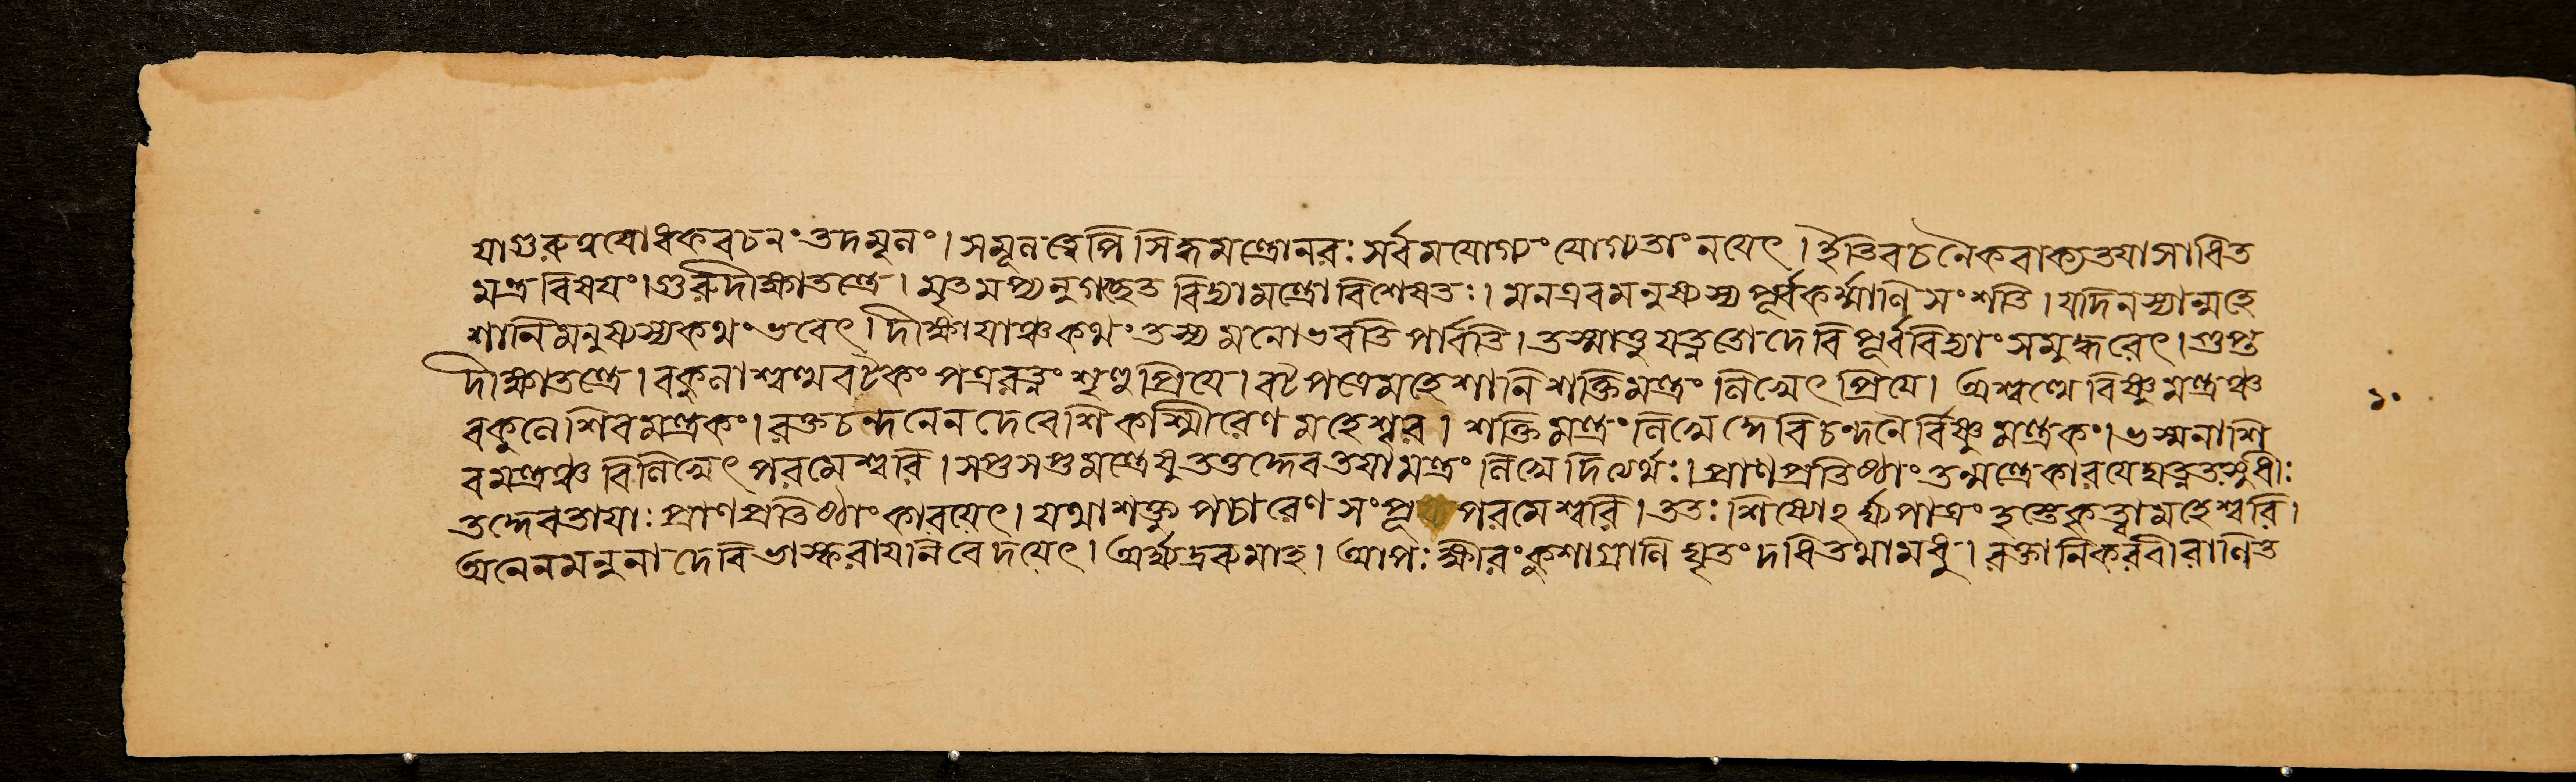 যাগুরুপ্রবোধকবচনং তদমূনং। সমূনত্বেপি সিদ্ধমন্ত্রোনরঃ সর্বমযোগ্যং যোগ্যতাং নয়েৎ। ইতিবচনৈকবাক্যতয়াসাধিত
মন্ত্রবিষয়ং। গুরুদীক্ষাতন্ত্রে। মৃতমপ্যনুগচ্ছেত বিদ্যামন্ত্রো বিশেষতঃ। মনএবমনুষ্যস্য পূর্বকর্ম্মাণি সংশতি। যদিনস্যান্মহে
শানিমনুষ্যস্যকথংভবেৎ। দীক্ষায়াঞ্চকথং তস্য মনোভবতি পার্বতি। তস্মাত্তু যত্নতো দেবি পূর্ববিদ্যাং সমুদ্ধরেৎ। গুপ্ত
দীক্ষাতন্ত্রে। বকুলাশ্বত্থবটৈকং পত্ররত্নং শৃণুপ্রিয়ে। বটপত্রেমহেশানি শক্তিমন্ত্রং লিখেৎ প্রিয়ে। অশ্বত্থে বিষ্ণুমন্ত্রঞ্চ
বকুলে শিবমন্ত্রকং। রক্তচন্দনেন দেবেশি কাশ্মীরেণ মহেশ্বর। শক্তিমন্ত্রং লিখেদ্দেবি চন্দনৈর্বিষ্ণুমন্ত্রকং। ভস্মনাশি
বমন্ত্রঞ্চ বিলিখেৎ পরমেশ্বরি। সপ্তসপ্তমন্ত্রেষু তত্তদ্দেবতয়ামন্ত্রং লিখেদিত্যর্থঃ। প্রাণপ্রতিষ্ঠাং তন্মন্ত্রে কারয়েদ্যত্নতঃসুধীঃ
তদ্দেবতায়াঃ প্রাণপ্রতিষ্ঠাং কারয়েৎ। যথাশক্ত্যুপচারেণ সংপূজ্য পরমেশ্বরি। ততঃ শিষ্যোঽর্ঘ্যপাত্রং হস্তেকৃত্বা মহেশ্বরি।
অনেনমনুনা দেবি ভাস্করায়নিবেদয়েৎ। অর্ঘ্যদ্রব্যমাহ। আপঃ ক্ষীরংকুশাগ্রাণি ঘৃতং দধিতথামধু। রক্তানিকরবীরাণিত
১০